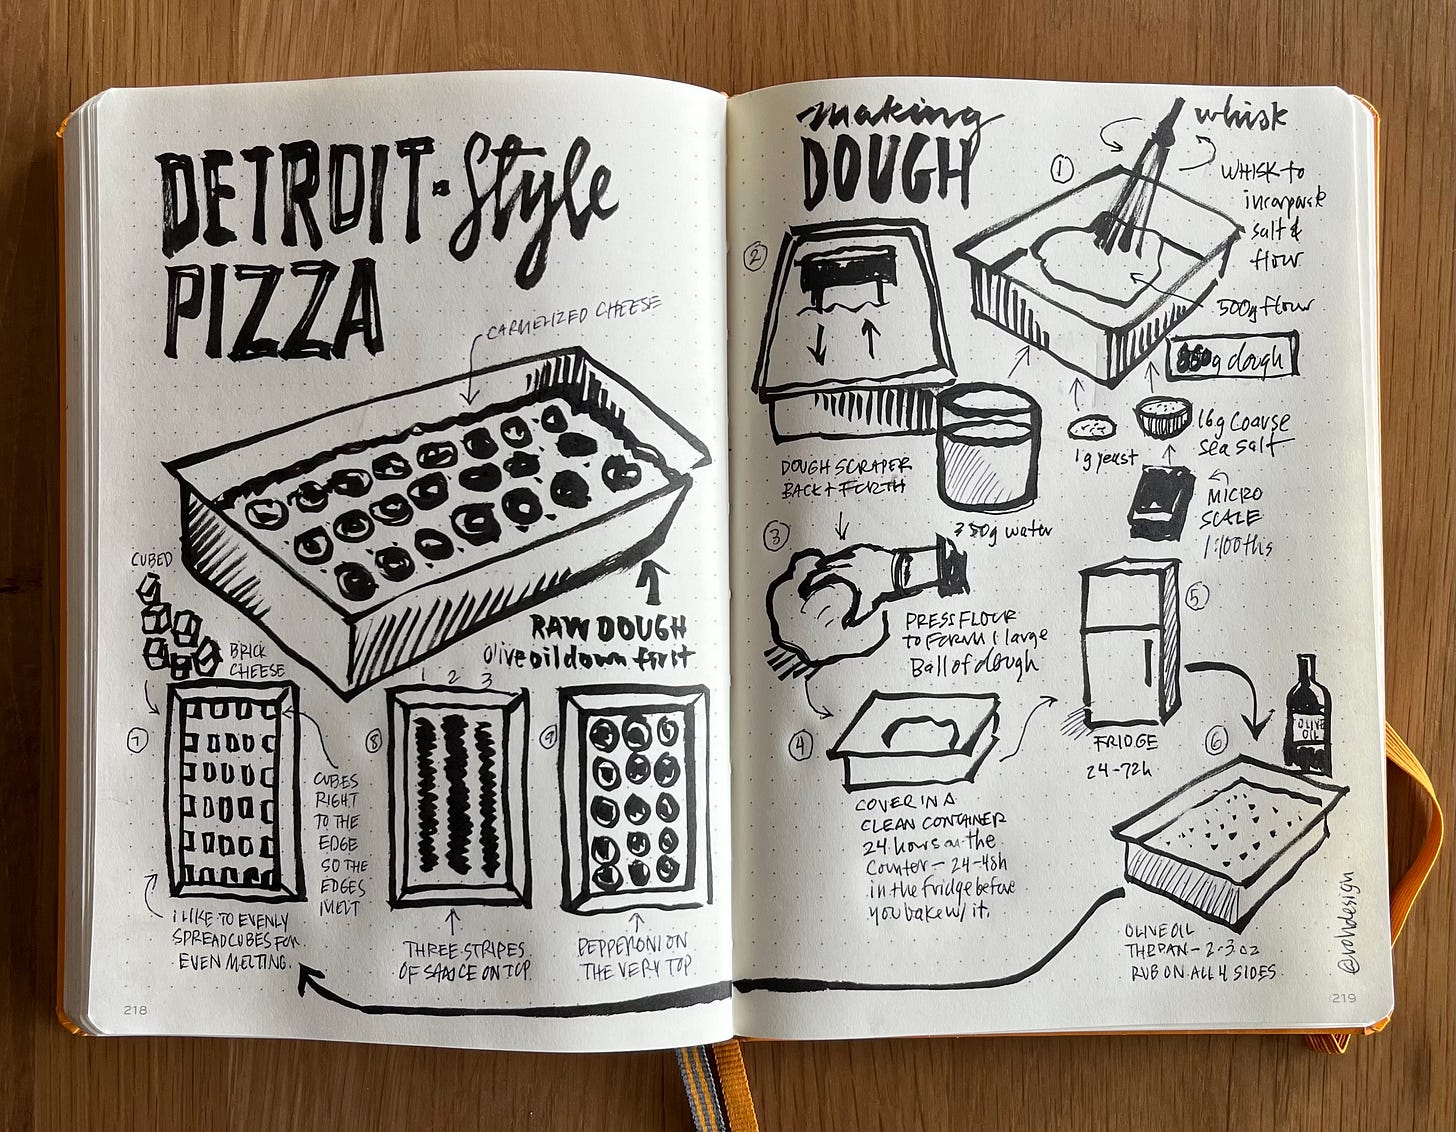 DETROIT-Style
PIZZA
CARMELIZED CHEESE
CUBED
BRICK
CHEESE
RAW DOUGH
Olive oil down first
7
CUBES
RIGHT
TO THE
EDGE
SO THE
EDGES
MELT
I LIKE TO EVENLY
SPREAD CUBES FOR
EVEN MELTING.
1 2 3
8
THREE STRIPES
OF SAUCE ON TOP.
9
PEPPERONI ON
THE VERY TOP
218
making
DOUGH
whisk
1
WHISK to
incorporate
salt &
flour
500g flour
g dough
1g yeast
16g Coarse
sea salt
MICRO
SCALE
1:100ths
350g water
2
DOUGH SCRAPER
BACK + FORTH
3
PRESS FLOUR
to FORM 1 large
Ball of dough
4
COVER IN A
CLEAN CONTAINER
24 hours on the
Counter – 24-48h
in the fridge before
you bake w/ it.
5
FRIDGE
24-72h
6
OLIVE
OIL
OLIVE OIL
THE PAN – 2-3 oz
RUB ON ALL 4 SIDES
@rohdesign
219